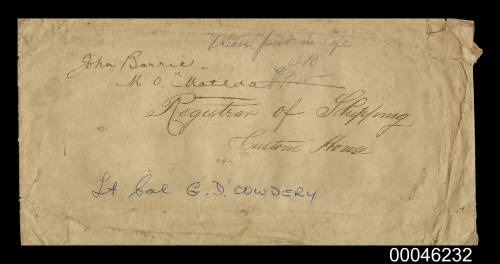 Please put in
John Barrie
M O "Matilda"
Registrar of Shipping
Custom House
Lt Col G. D. COWDERY
00046232